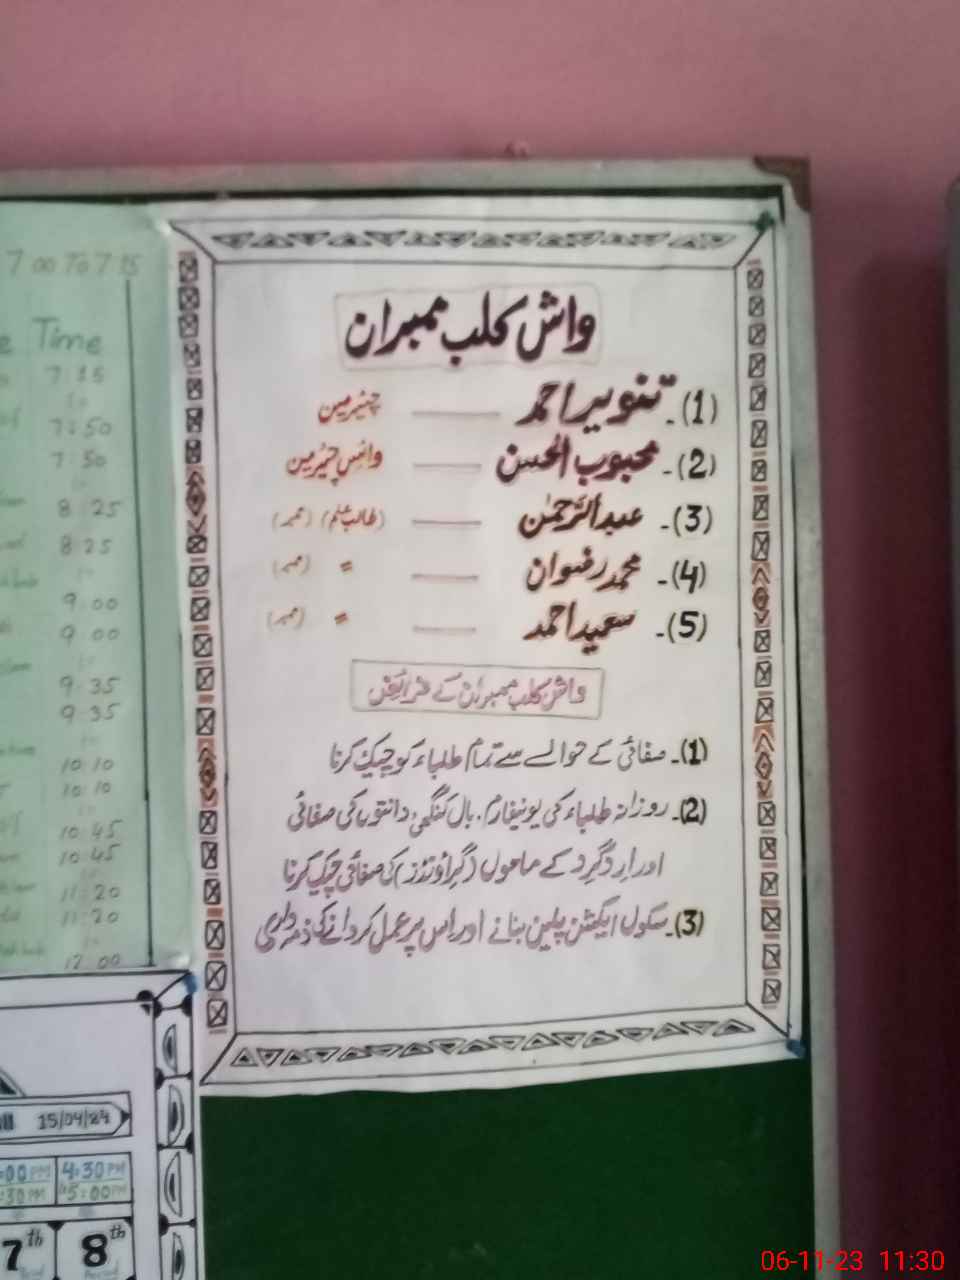 واش کلب ممبران
(1)۔ تنویر احمد ــــــ چئیرمین
(2)۔ محبوب الحسن ــــــ وائس چئیرمین
(3)۔ عبدالرحمٰن ــــــ (طالب علم) (ممبر)
(4)۔ محمد رضوان ــــــ〃 (ممبر)
(5)۔ سعید احمد ــــــ 〃 (ممبر)
واش کلب ممبران کے فرائض
(1)۔ صفائی کے حوالے سے تمام طلباء کو چیک کرنا
(2)۔ روزانہ طلباء کی یونیفارم۔ بال کنگھی، دانتوں کی صفائی
اور اردگرد کے ماحول (گراؤنڈز) کی صفائی چیک کرنا
(3)۔ سکول ایکشن پلین بنانے اور اس پر عمل کروانے کی ذمہ داری
7 00 To 7 15
Time
7:15
7:50
7:50
8:25
8:25
9:00
9:00
9:35
9:35
10:10
10:10
10:45
10:45
11:20
11:20
12:00
15/04/24
:00 PM 4:30 PM
:30 PM 5:00 PM
7th 8th
06-11-23 11:30